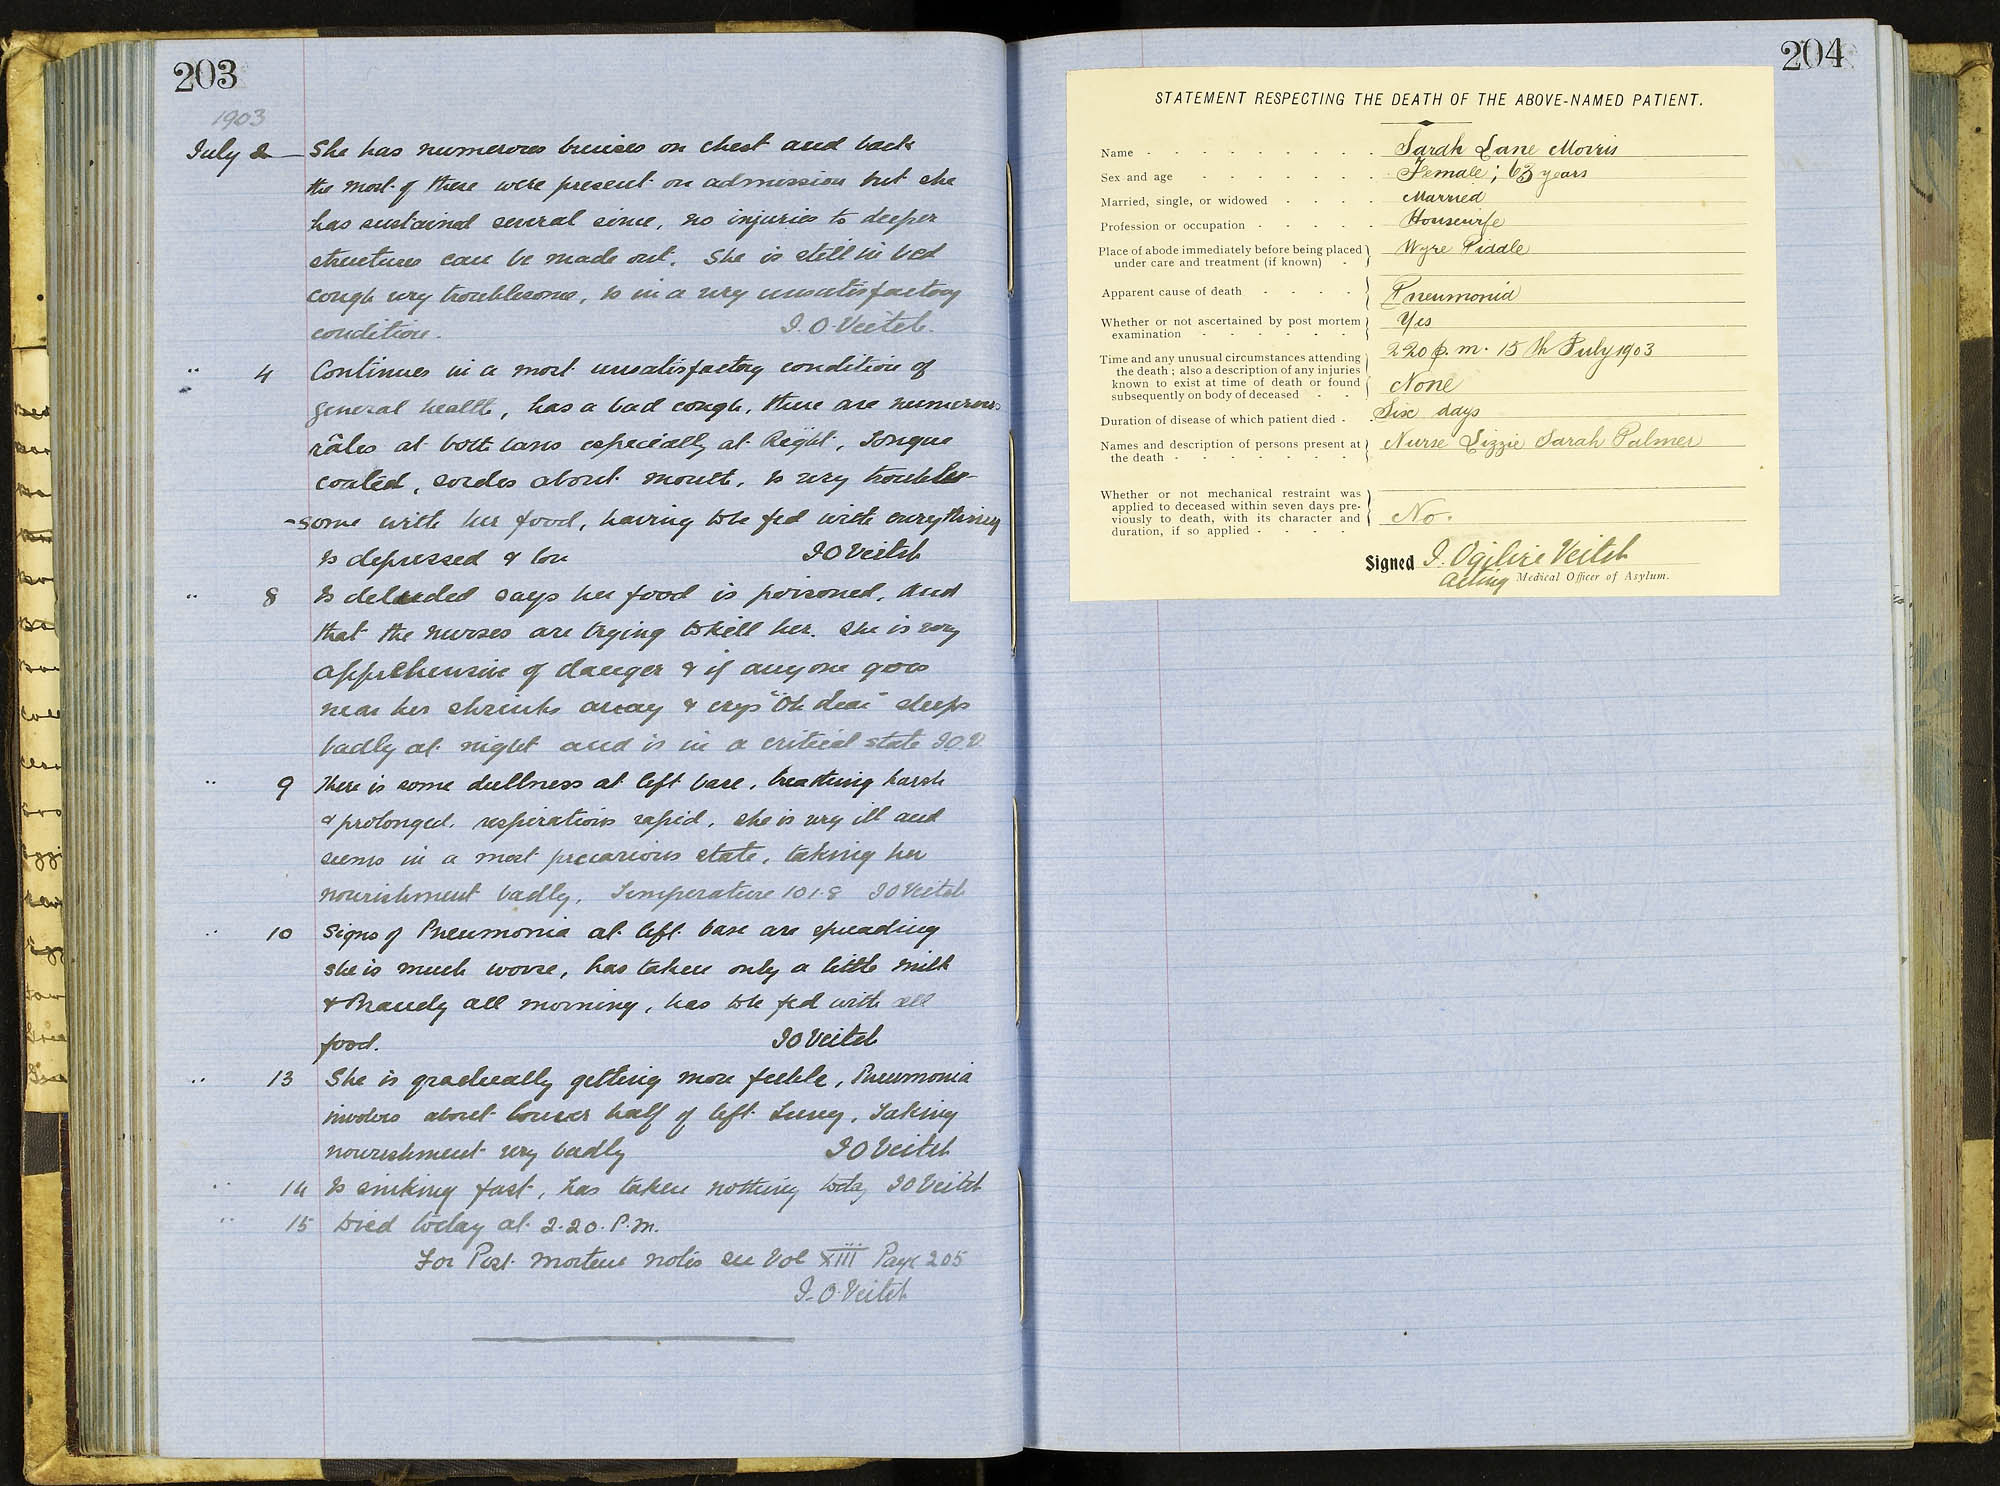 203
1903
July 2 She has numerous bruises on chest and back
the most of these were present on admission but she
has sustained several since, no injuries to deeper
structures can be made out. She is still in bed
cough very troublesome, is in a very unsatisfactory
condition. I. O. Veitch.
" 4 Continues in a most unsatisfactory condition of
general health, has a bad cough, there are numerous
râles at both bases especially at Right, Tongue
coated, sordes about mouth, is very trouble-
-some with her food, having to be fed with everything
Is depressed & low I O Veitch
" 8 Is deluded says her food is poisoned, and
that the nurses are trying to kill her. She is very
apprehensive of danger & if anyone goes
near her shrinks away & crys "Oh dear" sleeps
badly at night and is in a critical state I.O.V.
" 9 There is some dullness at left base, breathing harsh
& prolonged, respirations rapid, she is very ill and
seems in a most precarious state, taking her
nourishment badly, Temperature 101.8 I O Veitch
" 10 Signs of Pneumonia at left base are spreading
she is much worse, has taken only a little milk
& Brandy all morning, has to be fed with all
food. I O Veitch
" 13 She is gradually getting more feeble, Pneumonia
involves about lower half of left Lung, Taking
nourishment very badly I O Veitch
" 14 Is sinking fast, has taken nothing today I O Veitch
" 15 Died today at 2.20. P.m.
For Post mortem notes see Vol XIII Page 205
I. O. Veitch
204
STATEMENT RESPECTING THE DEATH OF THE ABOVE-NAMED PATIENT.
Name - - - - - - - - - Sarah Jane Morris
Sex and age - - - - - - - Female; 63 years
Married, single, or widowed - - - - Married
Profession or occupation - - - - - Housewife
Place of abode immediately before being placed Wyre Piddle
under care and treatment (if known) -
Apparent cause of death - - - - Pneumonia
Whether or not ascertained by post mortem Yes
examination - - - - - -
Time and any unusual circumstances attending 2 20 p.m. 15th July 1903
the death; also a description of any injuries
known to exist at time of death or found None
subsequently on body of deceased - -
Duration of disease of which patient died - - Six days
Names and description of persons present at Nurse Lizzie Sarah Palmer
the death - - - - - - -
Whether or not mechanical restraint was
applied to deceased within seven days pre-
viously to death, with its character and No.
duration, if so applied - - - -
Signed I. Ogilvie Veitch
Acting Medical Officer of Asylum.